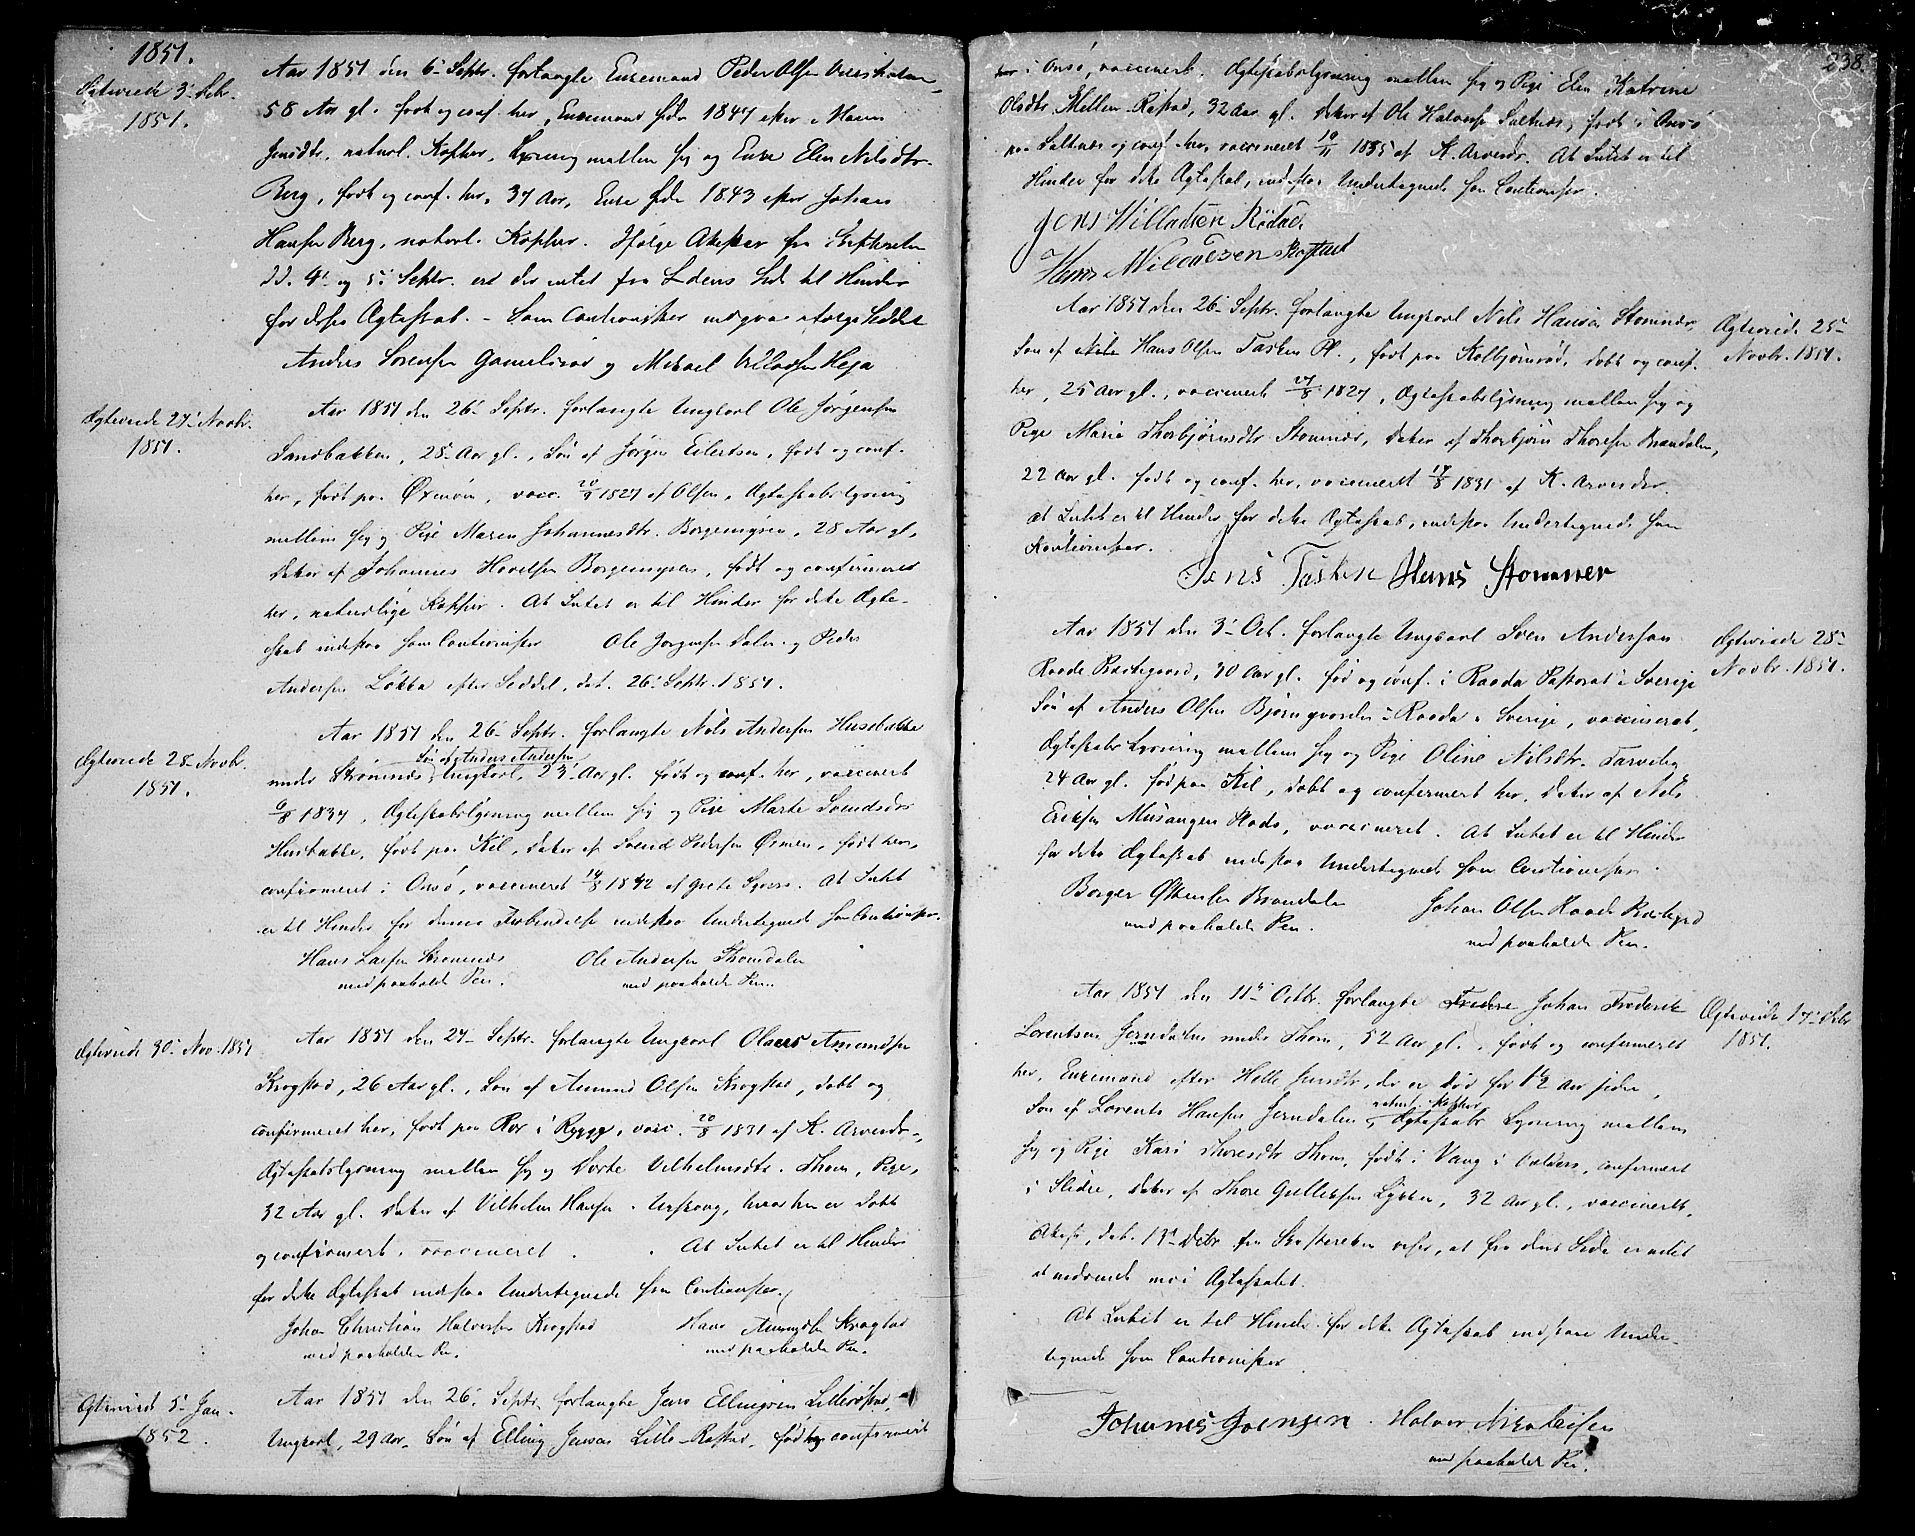 1851.
Ægteviede 3. Debr.
1851.
Aar 1851 den 6te Septr. forlangte Enkemand Peder Olsen
58 Aar gl. født og conf. her, Enkemand siden 1847 efter Maren
Jensdtr., naturl. Kopper, Lysning mellem sig og Enke Elen Nilsdtr.
Berg, født og conf. her, 37 Aar, Enke siden 1843 efter Johan
Hansen Berg, naturl. Kopper. Ifølge Attester fra Skifteretten
dd. 4de og 5te Septr. er der intet fra dens Side til Hinder
for dette Ægteskab. – Som Cautionister udgiver ifølge Seddel
Anders Sørensen Gamelsrød og Mikael Villadsen Heja
Ægteviede 27. Novbr.
1851.
Aar 1851 den 26. Septr. forlangte Ungkarl Ole Jørgensen
Sandbakken, 25 Aar gl., Søn af Jørgen Eilertsen, født og conf.
her, født paa Øxenøen, vacc. 20/9 1827 af Olsen, Ægteskabslysning
mellem sig og Pige Maren Johannesdtr. Borgemyren, 28 Aar gl.,
Datter af Johannes Hovelsen Borgemyren, født og confirmeret
her, naturlige Kopper. At Intet er til Hinder for dette Ægte-
skab indestaa som Cautionister Ole Jørgensen Dalen og Peder
Andersen Løkka efter Seddel, dat. 26. Septr. 1851.
Ægteviede 28. Novbr.
1851.
Aar 1851 den 26. Septr. forlangte Nils Andersen Husebakke
Søn af Anders Andersen
under Strømnes, Ungkarl, 23 Aar gl. født og conf. her, vaccineret
6/8 1837, Ægteskabslysning mellem sig og Pige Marte Svendsdtr
Husbakke, født paa Kil, Datter af Svend Pedersen Øxnen, født her,
confirmeret i Onsø, vaccineret 14/8 1842 af Grete Sperre. At Intet
er til Hinder for denne Forbindelse indestaa Undertegnede som Cautionister.
Hans Larsen Strømnes Ole Andersen Thomdalen
med paaholden Pen. med paaholden Pen.
Ægteviede 30. Nov. 1851
Aar 1851 den 27. Septr. forlangte Ungkarl Olaus Amundsen
Krogstad, 26 Aar gl., Søn af Amund Olsen Krogstad, døbt og
confirmeret her, født paa Rør i Rygge, vacc. 20/8 1831 af K. Arvesdr.,
Ægteskabslysning mellem sig og Dorte Vilhelmsdtr. Thom, Pige,
32 Aar gl. Datter af Vilhelm Hansen i Urskoug, hvor hun er døbt
og confirmeret, vaccineret. At Intet er til Hinder
for dette Ægteskab indestaa Undertegnede som Cautionister.
Johan Christian Halvorsen Krogstad Hans Amundsen Krogstad
med paaholden Pen. med paaholden Pen.
Ægteviet 5. Jan.
1852.
Aar 1851 den 26. Septr. forlangte Jens Ellingsen Lillerøstad
Ungkarl, 29 Aar, Søn af Elling Jensen Lille-Røstad, født og confirmeret
238.
i Onsø, vaccineret, Ægteskabslysning mellem sig og Pige Elen Katrine
Olsdtr. Mellem-Røstad, 32 Aar gl. Datter af Ole Halvorsen Saltnæs, født i Onsø
paa Saltnæs og conf. her, vaccineret 19/11 1835 af K. Arvesdr. At Intet er til
Hinder for dette Ægteskab, indestaa Undertegnede som Cautionister.
Jens Willadsen Rødad
Hans Nilcolesen Røstad
Ægteviede 25.
Novbr. 1851.
Aar 1851 den 26. Septr. forlangte Ungkarl Nils Hansen Stomnær
Søn af Hans Olsen Tasken Pl., født paa Kolbjørnsrød, døbt og conf.
her, 25 Aar gl., vaccineret 27/8 1827, Ægteskabslysning mellem sig og
Pige Marie Thorbjørnsdtr Stomnær, Datter af Thorbjørn Thoresen Brandalen,
22 Aar gl. født og conf. her, vaccineret 17/8 1831 af K. Arvesdr.
At Intet er til Hinder for dette Ægteskab, indestaa Undertegnede som
Kautionister.
Jens Tasken Hans Stomner
Ægteviede 28.
Novbr. 1851.
Aar 1851 den 3. Oct. forlangte Ungkarl Sven Anderson
Raade Præstegaard, 30 Aar gl. født og conf. i Raada Pastorat i Sverige
Søn af Anders Olsen Bjørngvorden i Raada i Sverige, vaccineret,
Ægteskabs Lysning mellem sig og Pige Oline Nilsdtr. Tarvebog
24 Aar gl. født paa Kil, døbt og confirmeret her, Datter af Nils
Eriksen Musangen Plads, vaccineret. At Intet er til Hinder
for dette Ægteskab indestaa Undertegnede som Cautionister.
Borger Østensen Brandalen Johan Olsen Raade Præstegrd
med paaholden Pen. med paaholden Pen.
Ægteviede 17. Debr
1851.
Aar 1851 den 11te Octbr. forlangte Johan Frederik
Lorentsen Jerndalen under Thom, 52 Aar gl., født og confirmeret
her, Enkemand efter Helle Jensdtr., der er død for 1 1/2 Aar siden,
naturl. Kopper
Søn af Lorents Hansen Jerndalen, Ægteskabs Lysning mellem
sig og Pige Kari Thoresdtr Thom, født i Vang i Valders, confirmeret
i Slidre, Datter af Thore Gulleksen Lykken, 32 Aar gl., vaccineret.
Attest, dat. 13. Debr fra Skifteretten viser, at fra dens Side er intet
at indvende mod Ægteskabet.
At Intet er til Hinder for dette Ægteskab indestaae Under-
tegnede som Cautionister
Johanes Joensen. Halvor Nikolaisen
med paaholdt Pen.